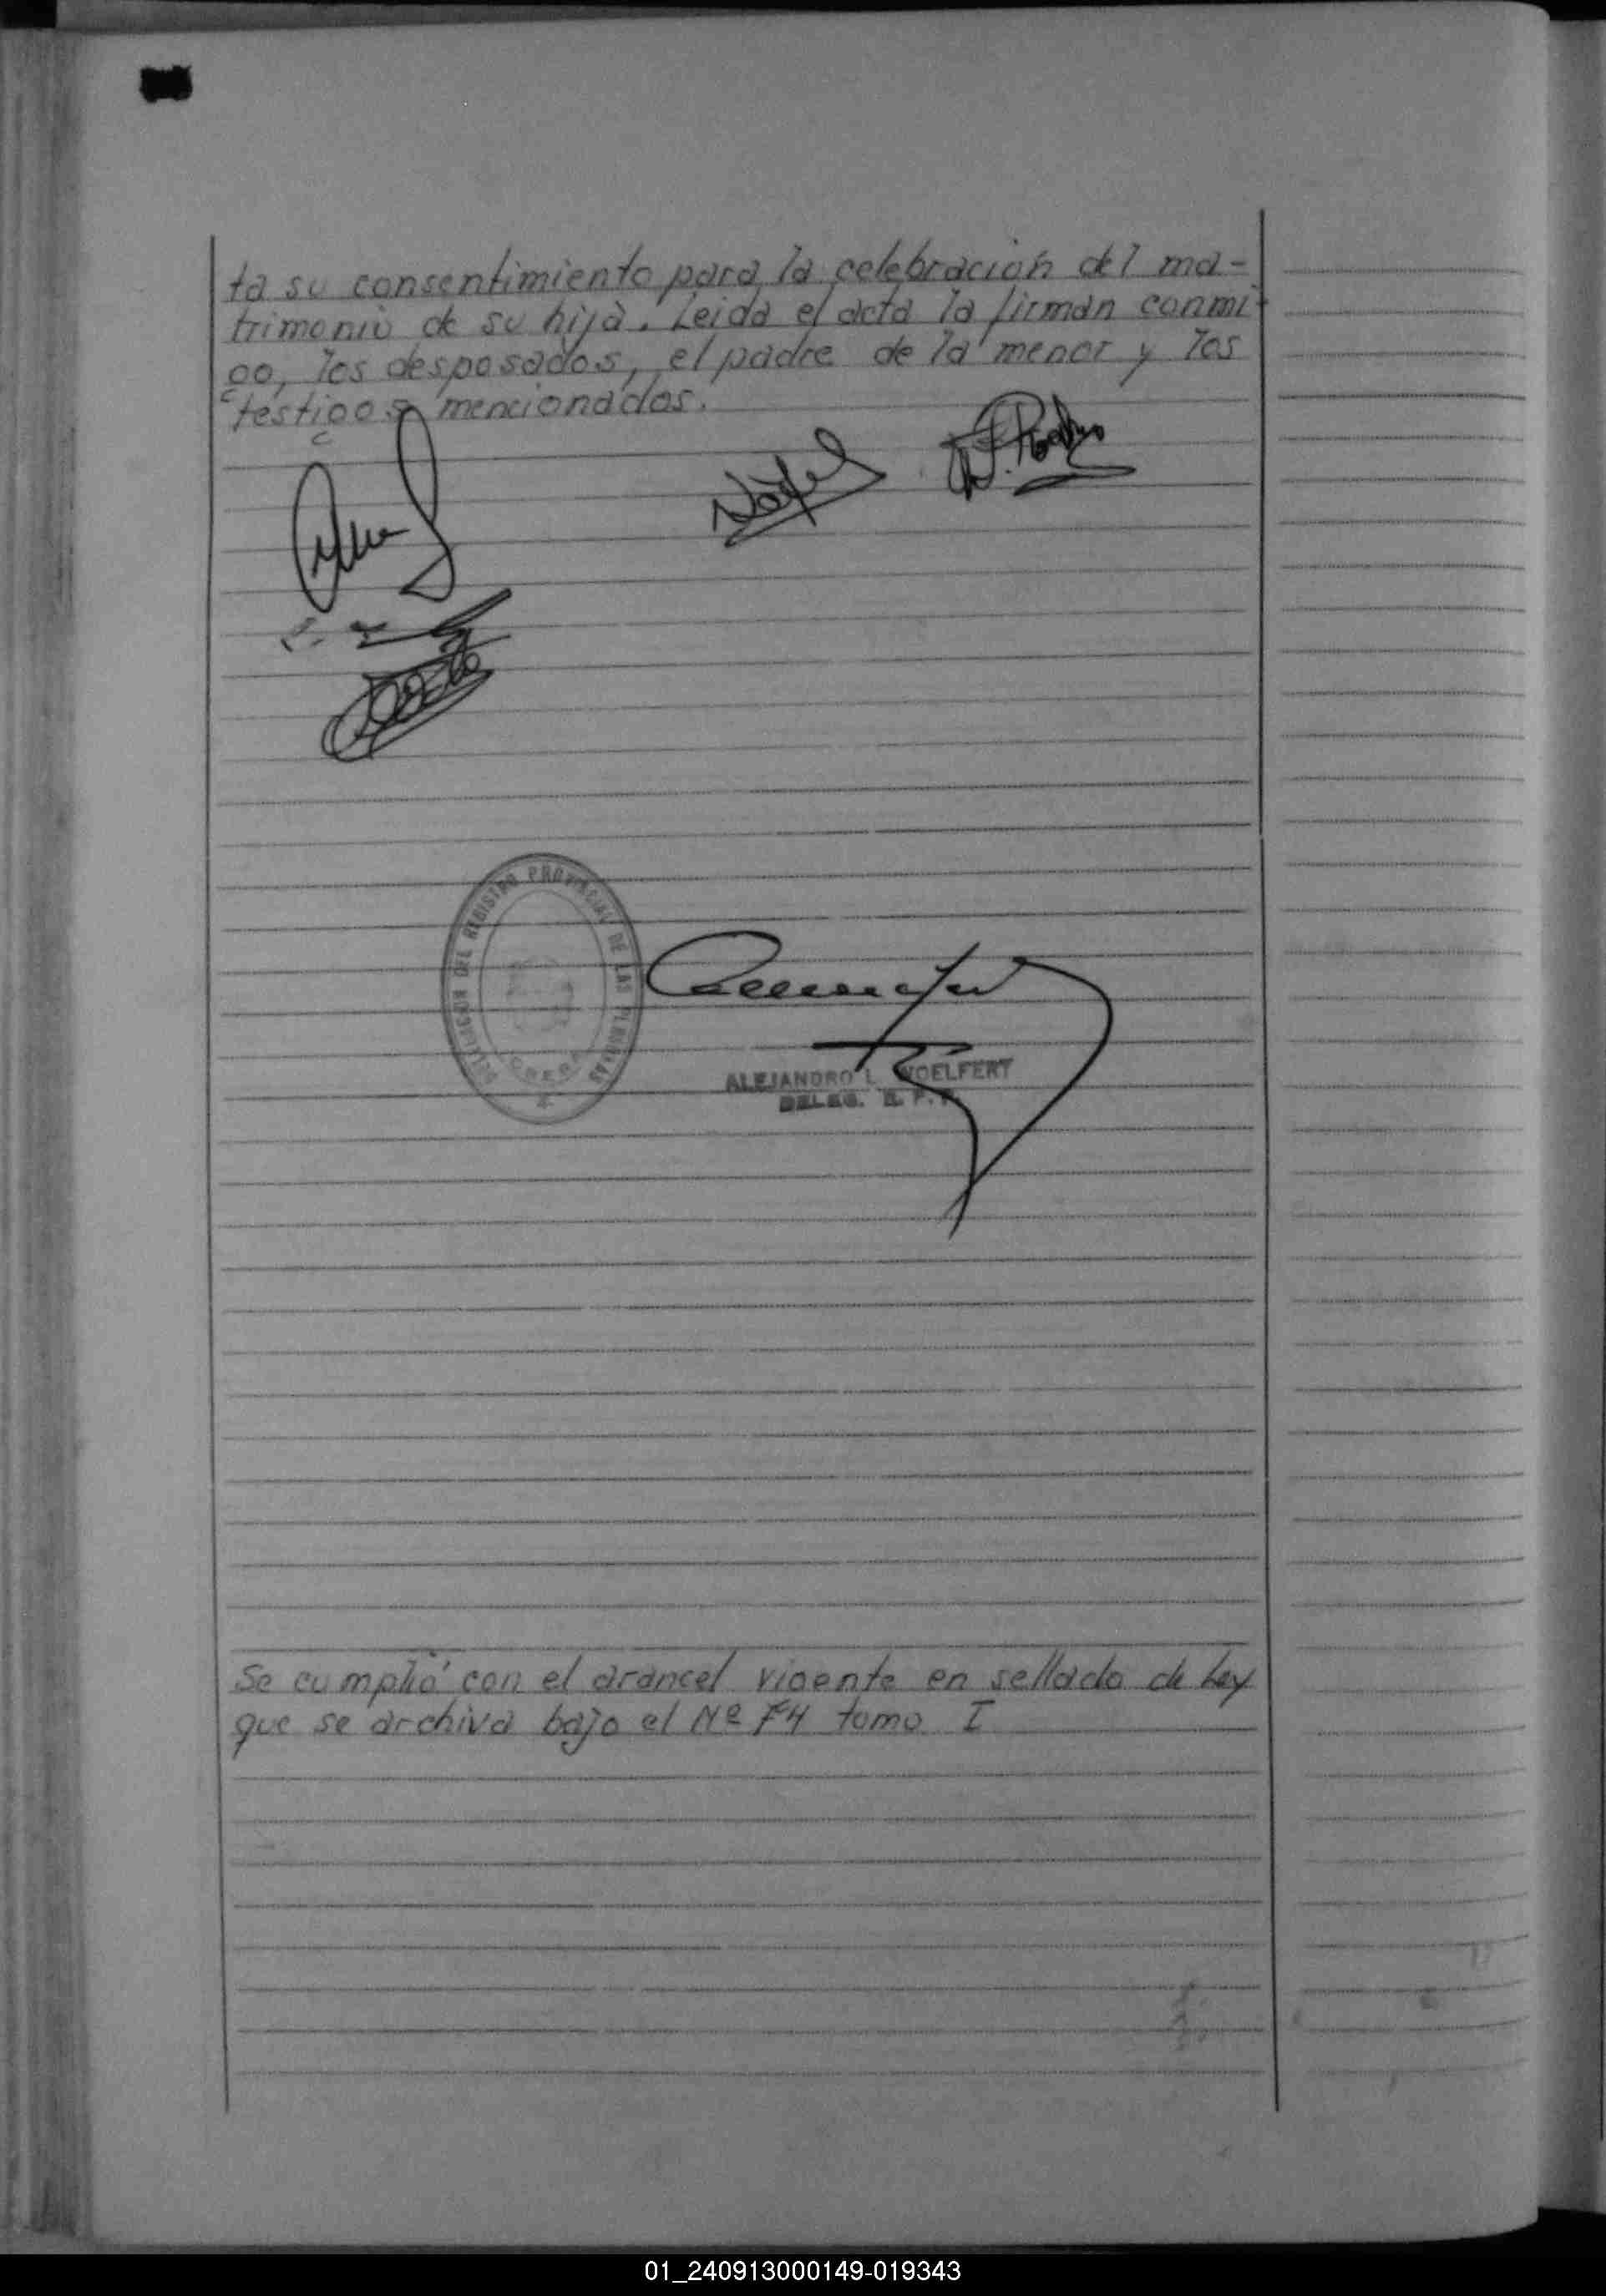 ta su consentimiento para la celebración del ma-
trimonio de su hija. Leida el acta la firman conmi-
go, los desposados, el padre de la menor y los
testigos mencionados.
DELEGACION DEL REGISTRO PROVINCIAL DE LAS PERSONAS
ALEJANDRO L. WOELFERT
DELEG. R. P. P.
Se cumplió con el arancel vigente en sellado de Ley
que se archiva bajo el Nº tomo I
01_240913000149-019343